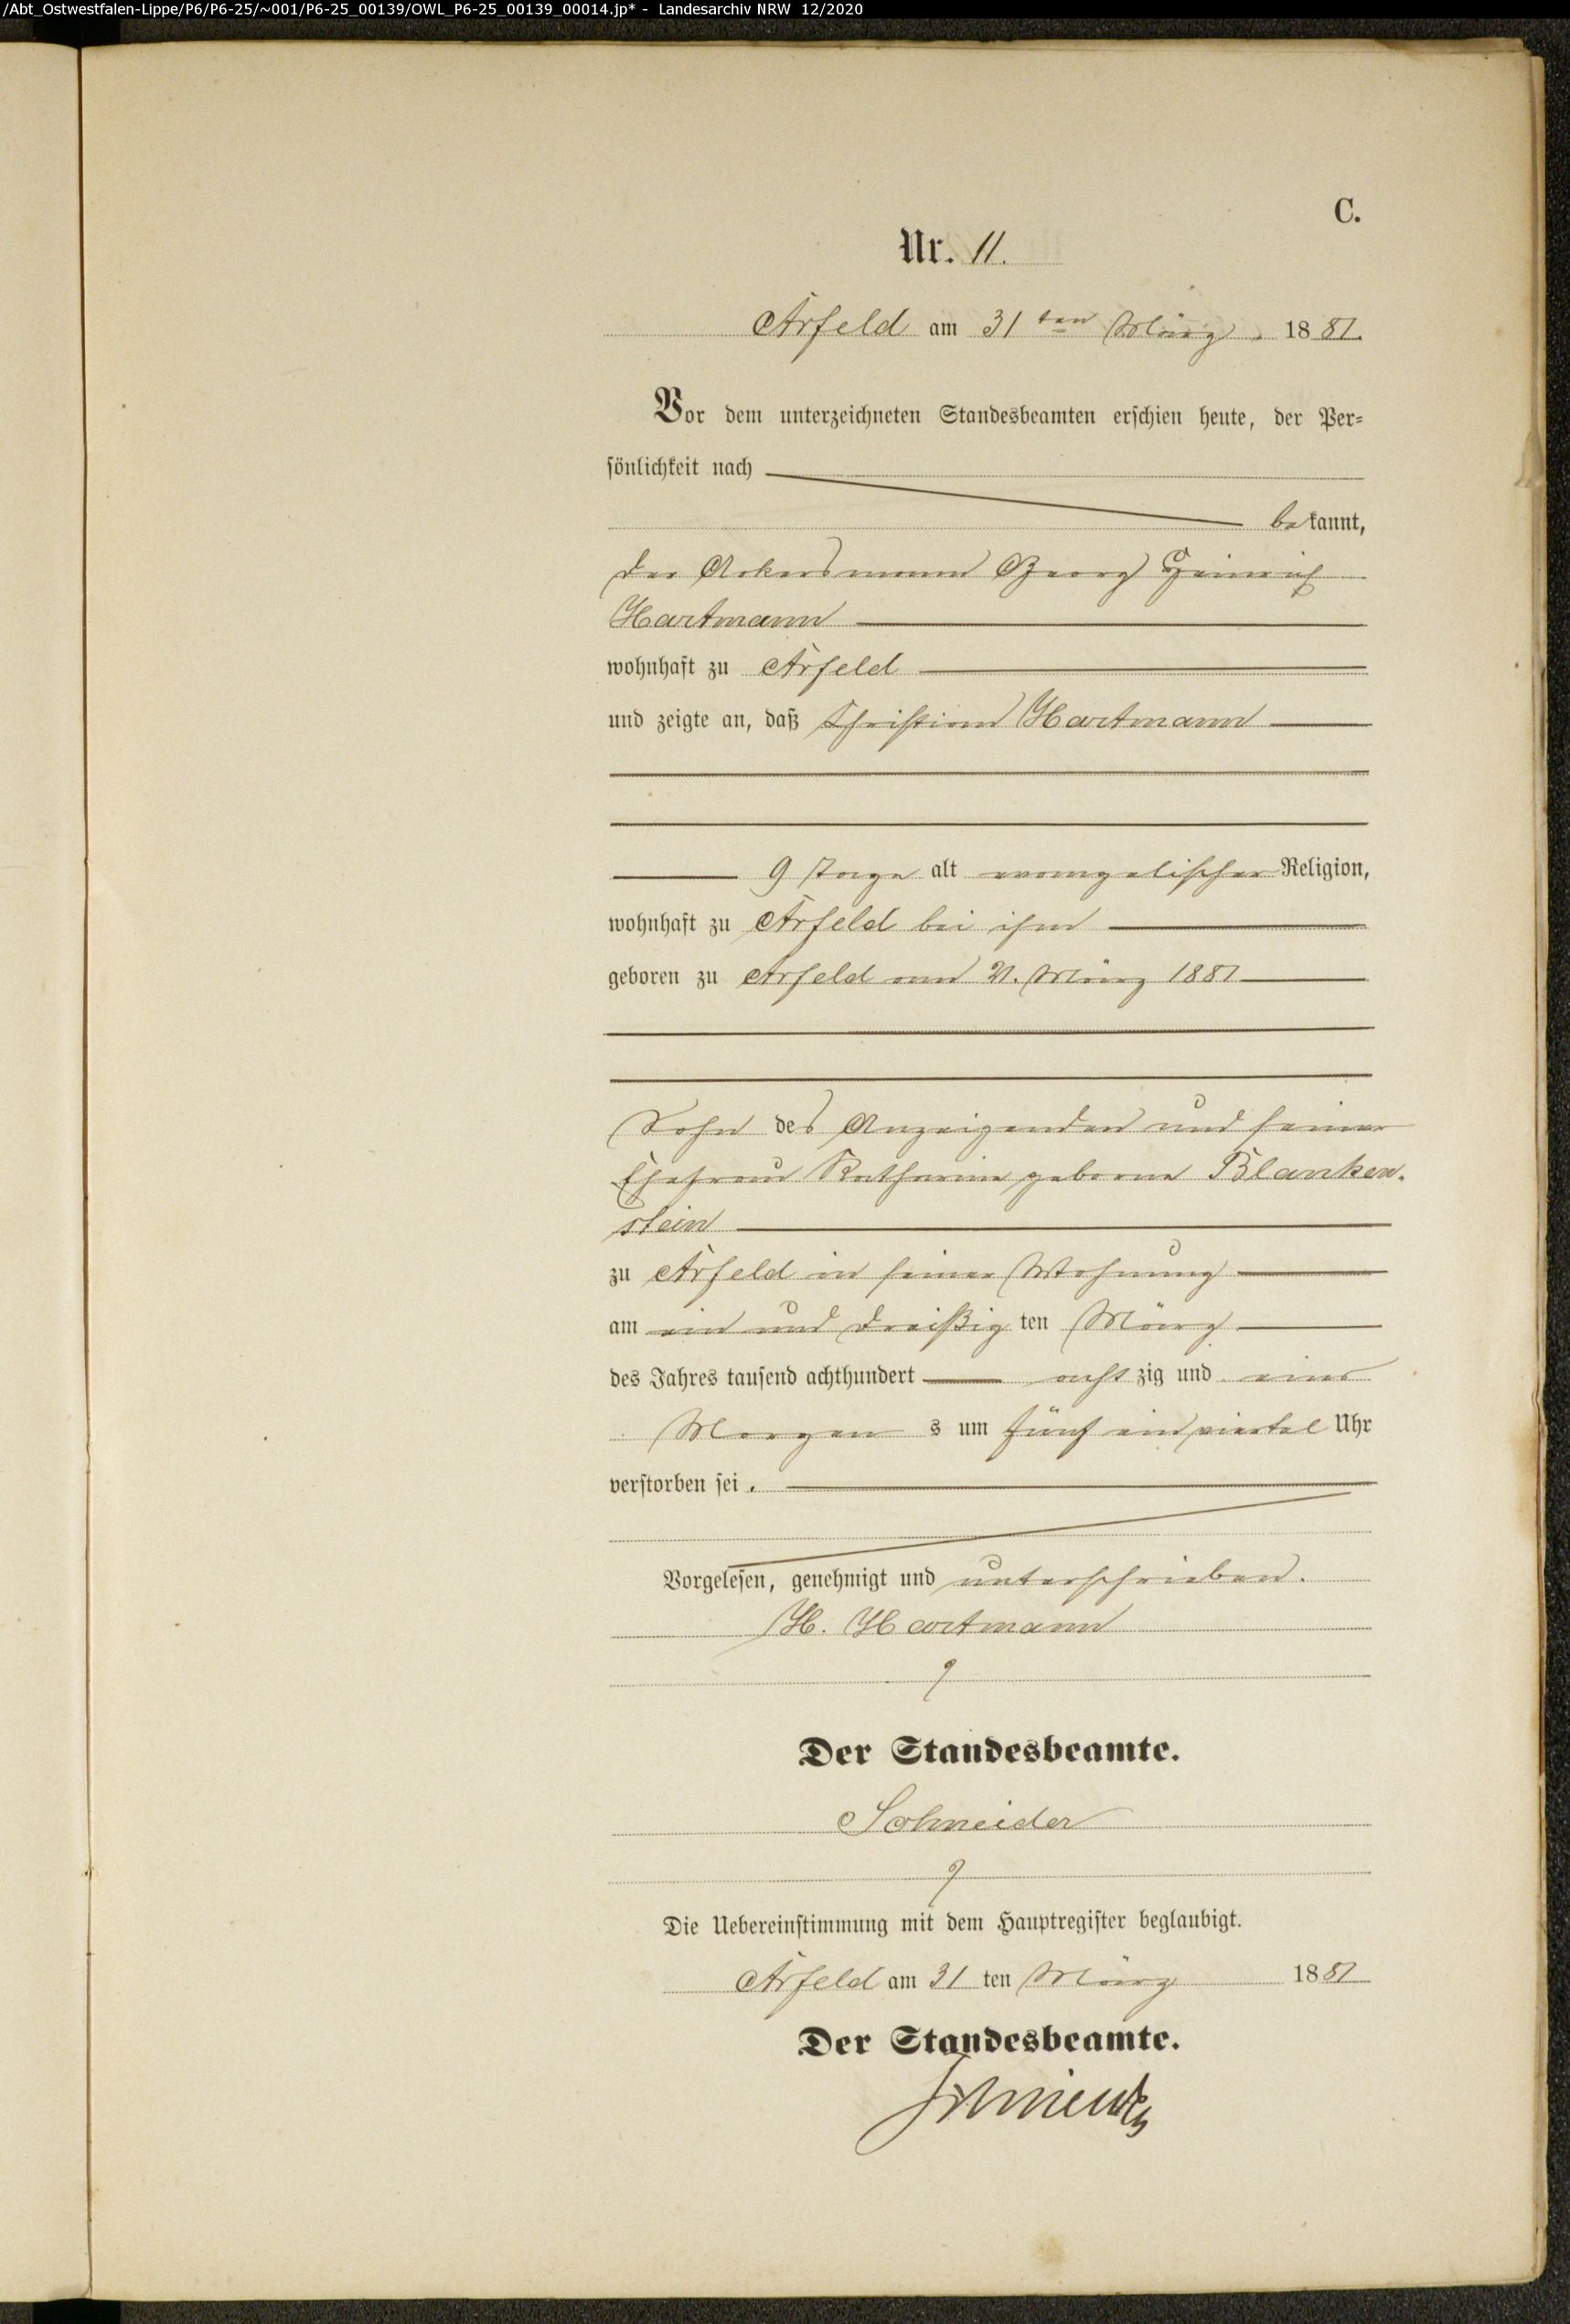 /Abt_Ostwestfalen-Lippe/P6/P6-25/~001/P6-25_00139/OWL_P6-25_00139_00014.jp* - Landesarchiv NRW 12/2020
C.
Nr. 11.
Arfeld am 31ten März 1881.
Vor dem unterzeichneten Standesbeamten erschien heute, der Per-
sönlichkeit nach
bekannt,
der Ackersmann Georg Heinrich
Hartmann
wohnhaft zu Arfeld
und zeigte an, daß Christian Hartmann
9 Tage alt evangelischer Religion,
wohnhaft zu Arfeld bei ihm
geboren zu Arfeld am 21. März 1881
Sohn des Anzeigenden und seiner
Ehefrau Katharine geborne Blanken-
stein
zu Arfeld in seiner Wohnung
am ein und dreißig ten März
des Jahres tausend achthundert acht zig und eins
Morgen s um fünf ein viertel Uhr
verstorben sei.
Vorgelesen, genehmigt und unterschrieben.
H. Hartmann
Der Standesbeamte.
Schneider
Die Uebereinstimmung mit dem Hauptregister beglaubigt.
Arfeld am 31 ten März 1881
Der Standesbeamte.
Schneider